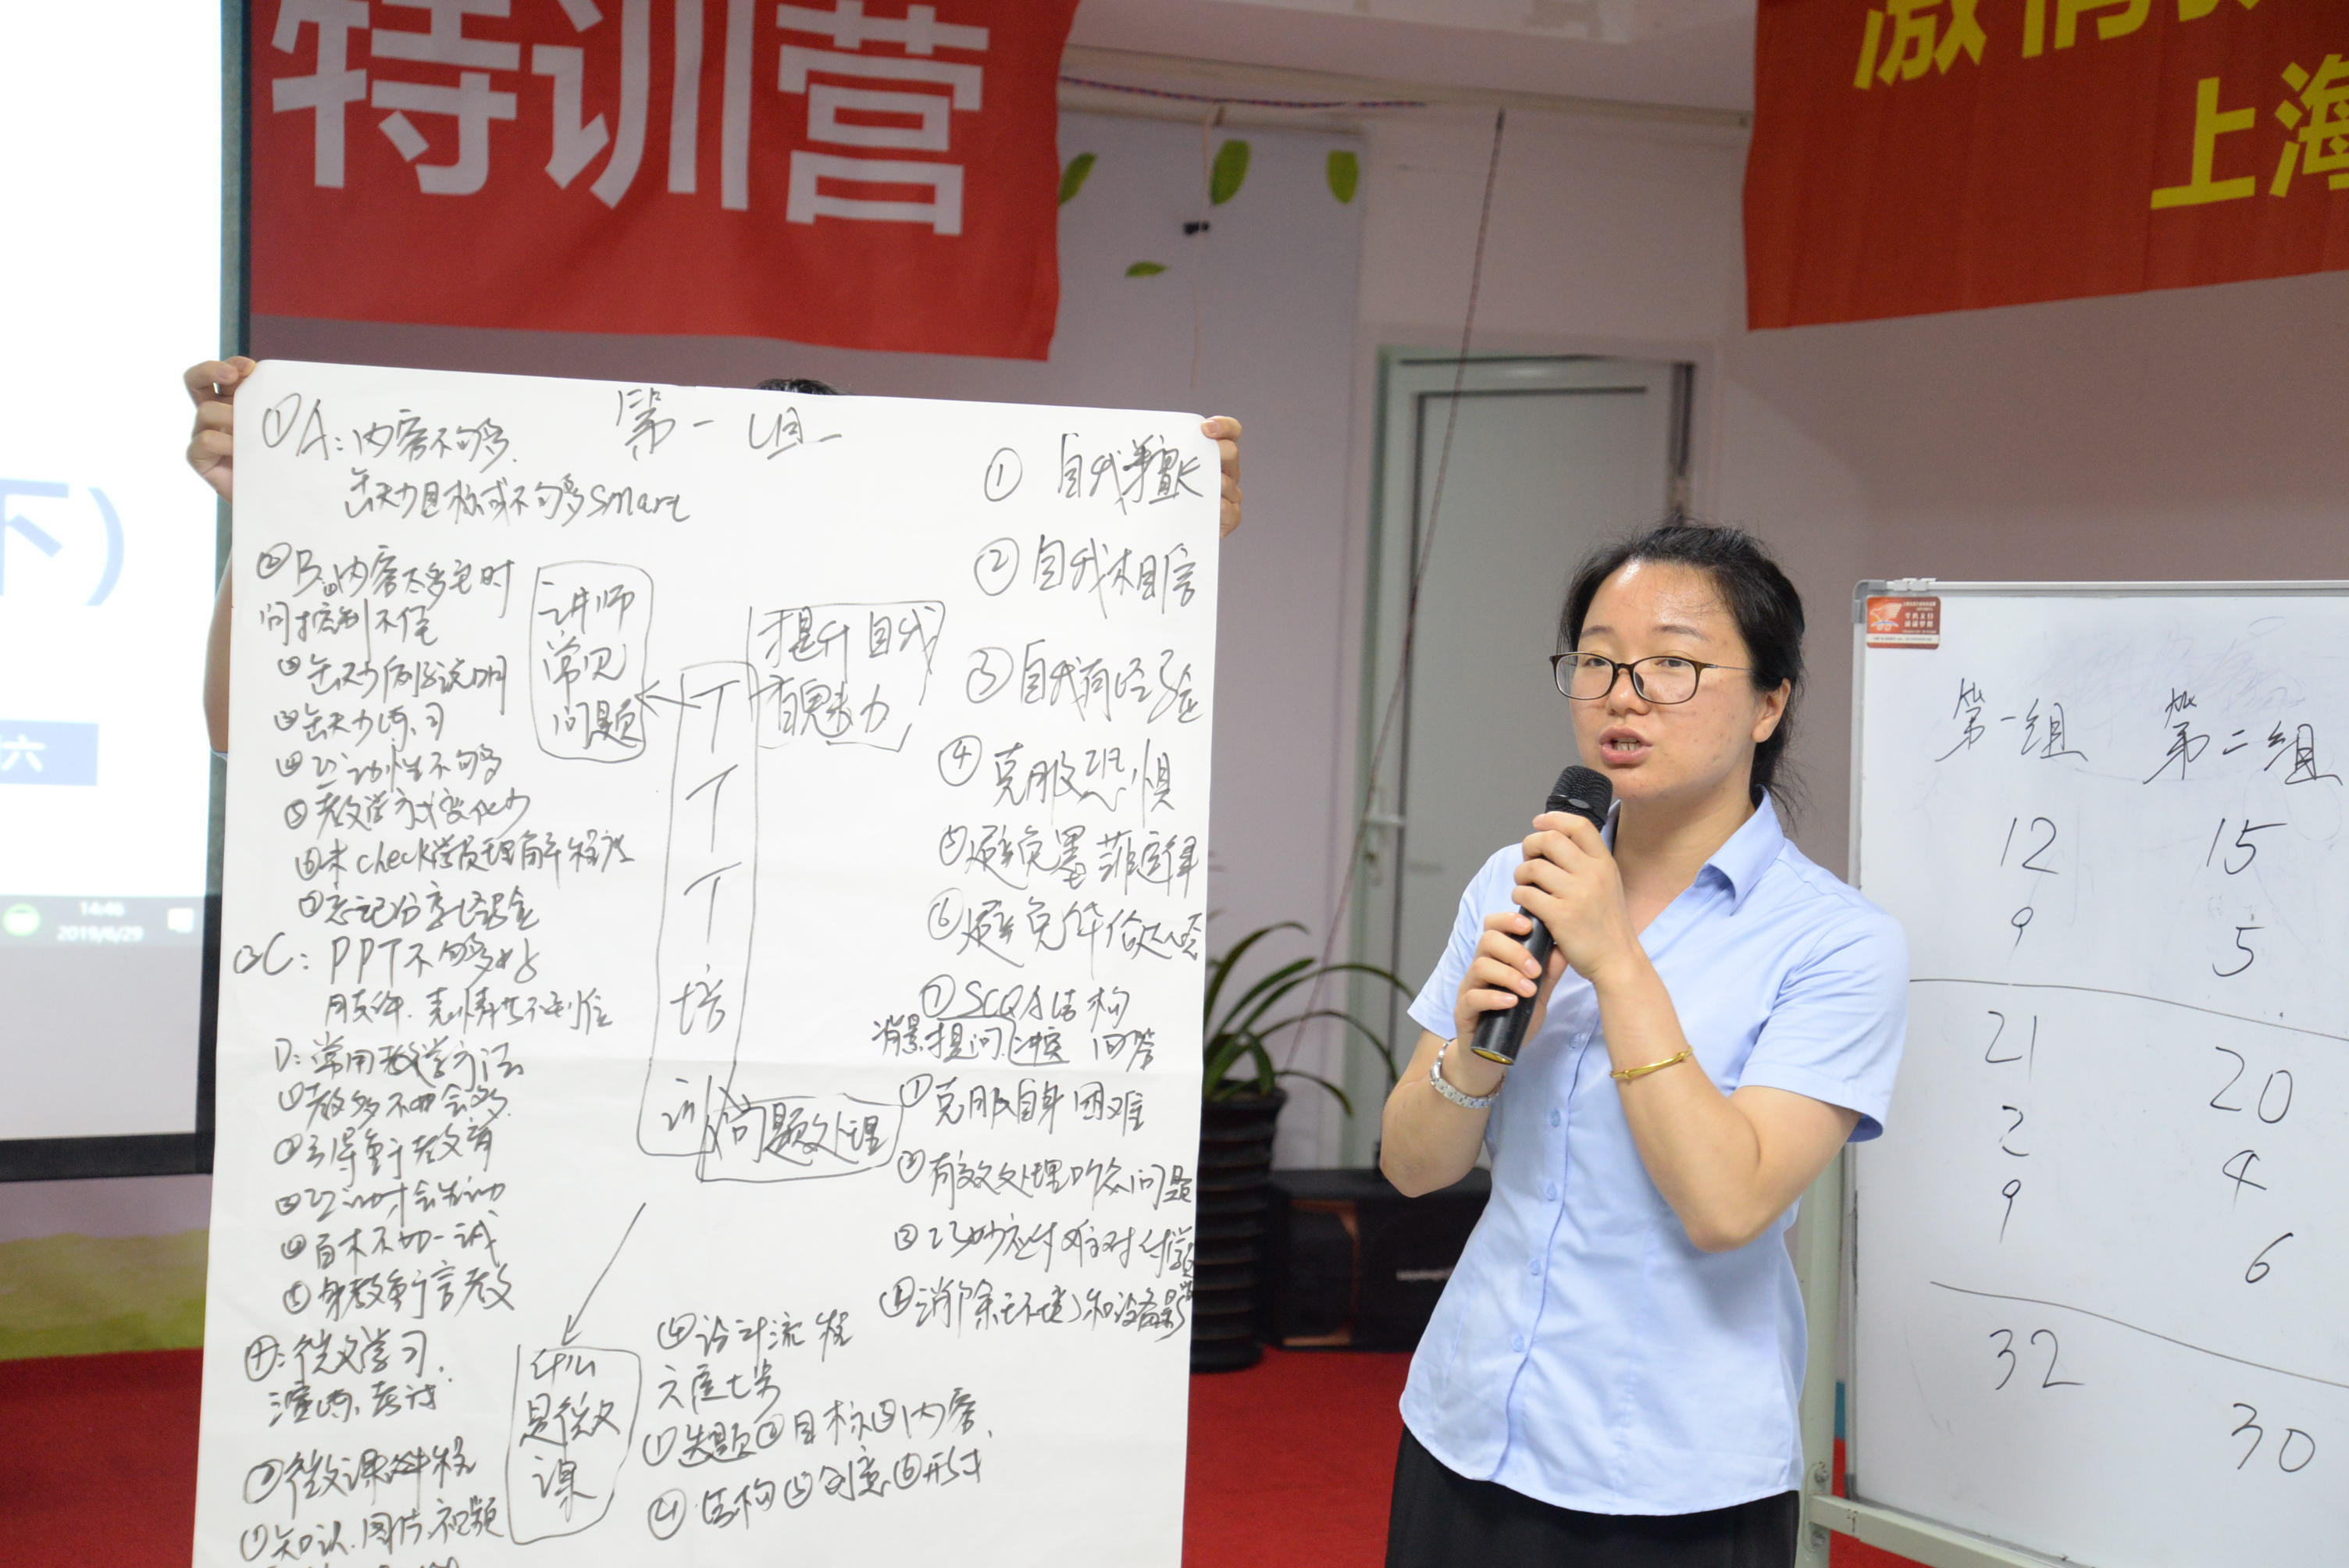 特训营
激情
上海
下)
六
14:46
2019/6/29
第一组
①A:内容不够多.
缺少目标或不够多smart
②B:①内容太多它时
间控制不住
②缺少例证说明
③缺少练习
④互动性不够多
⑤教学方式变化少
⑥未check学员理解程度
⑦忘记分享经验
③C: PPT不够好
肢体、表情共不到位
D:常用教学方法
①教多不如会多.
②引导重于教育
③互动才会生动
④百木不如一试
⑤身教重于言教
④:微学习.
演练、考试
②微课件
①知识.图片.视频
讲师
常见
问题
提升自我
有魅力
TTT培训
问题处理
什么
是微
课
① 自我擅长
② 自我相信
③ 自我有经验
④ 克服恐惧
⑤ 避免墨菲定律
⑥ 避免华伦达
⑦ SCQA结构
背景.提问.冲突 回答
① 克服自身困难
② 有效处理听众问题
③ 巧妙应付难对付学员
④ 消除环境和设备影
④设计流程
六度七步
①选题②目标③内容、
④结构⑤创意⑥形式
第一组 第二组
12 15
9 5
21 20
2 4
9 6
32 30